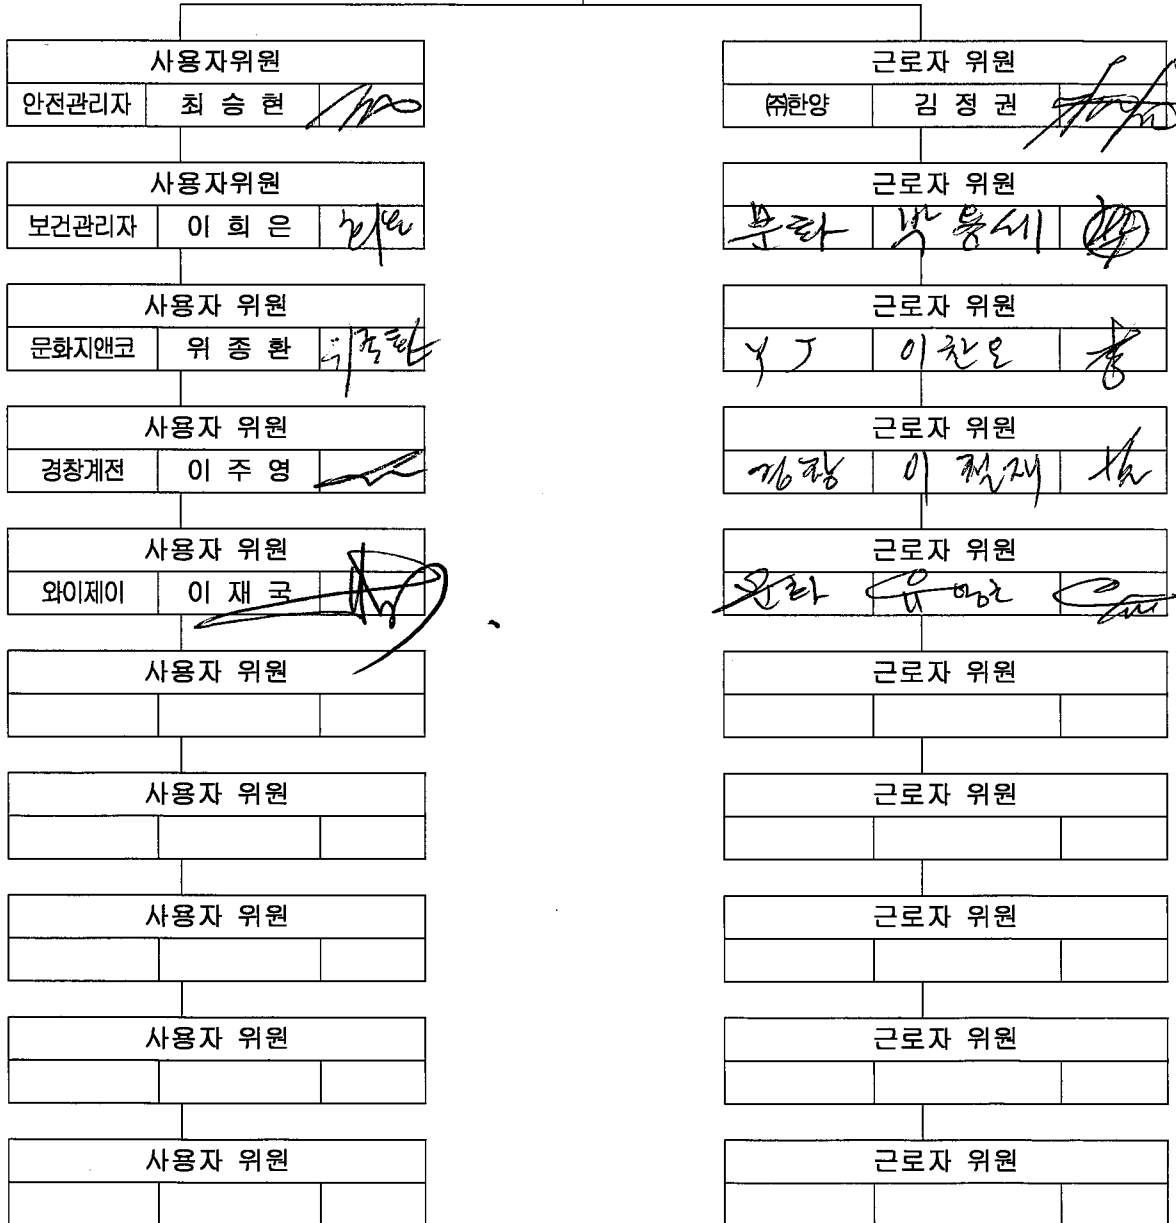 사용자위원
안전관리자 최 승 현
사용자위원
보건관리자 이 희 은
사용자 위원
문화지앤코 위 종 환 위종환
사용자 위원
경창계전 이 주 영
사용자 위원
와이제이 이 재 국
사용자 위원
사용자 위원
사용자 위원
사용자 위원
사용자 위원
근로자 위원
㈜한양 김 정 권
근로자 위원
문화 박용세
근로자 위원
YJ 이찬오
근로자 위원
경창 이
근로자 위원
문화 유
근로자 위원
근로자 위원
근로자 위원
근로자 위원
근로자 위원